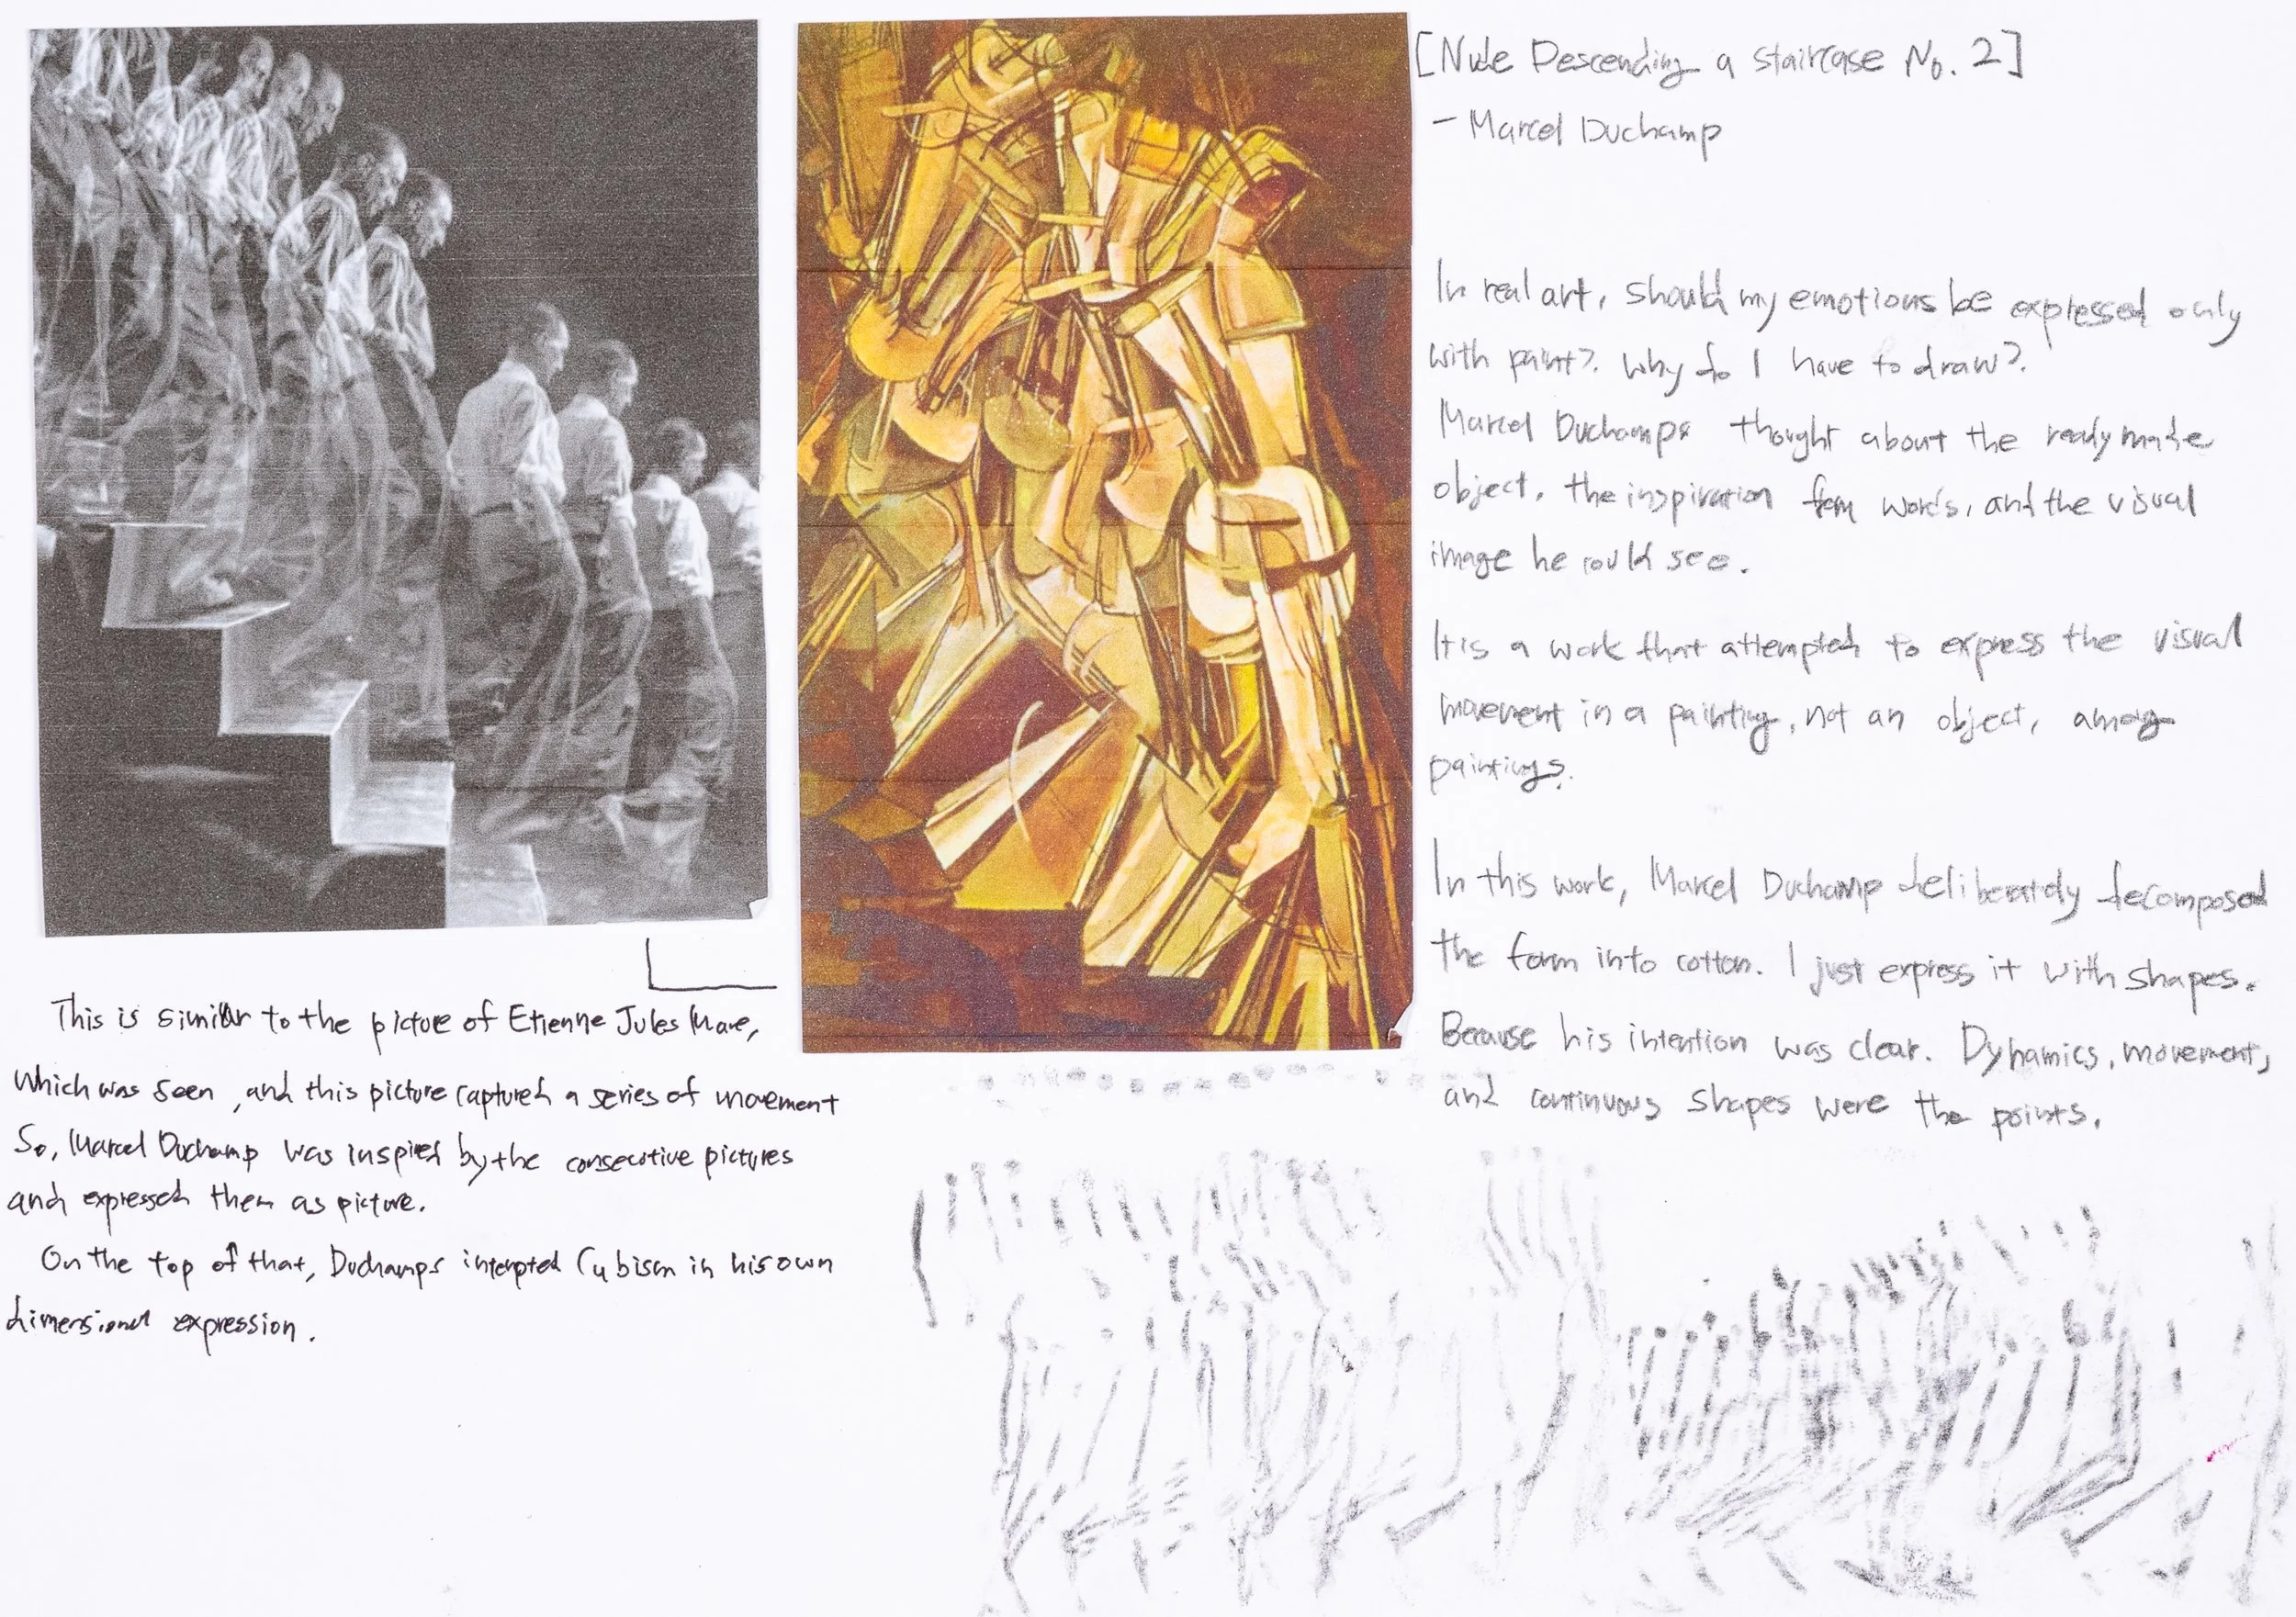 [Nude Descending a staircase No. 2]
- Marcel Duchamp
In real art, should my emotions be expressed only
with paint? Why do I have to draw?
Marcel Duchamps thought about the ready made
object, the inspiration from words, and the visual
image he could see.
It is a work that attempted to express the visual
movement in a painting, not an object, among
paintings.
In this work, Marcel Duchamp deliberately decomposed
the form into cotton. I just express it with shapes.
Because his intention was clear. Dynamics, movement,
and continuous shapes were the points.
This is similar to the picture of Etienne Jules Mare,
which was seen, and this picture captured a series of movement
So, Marcel Duchamp was inspired by the consecutive pictures
and expressed them as picture.
On the top of that, Duchamps interpted Cubism in his own
dimensional expression.